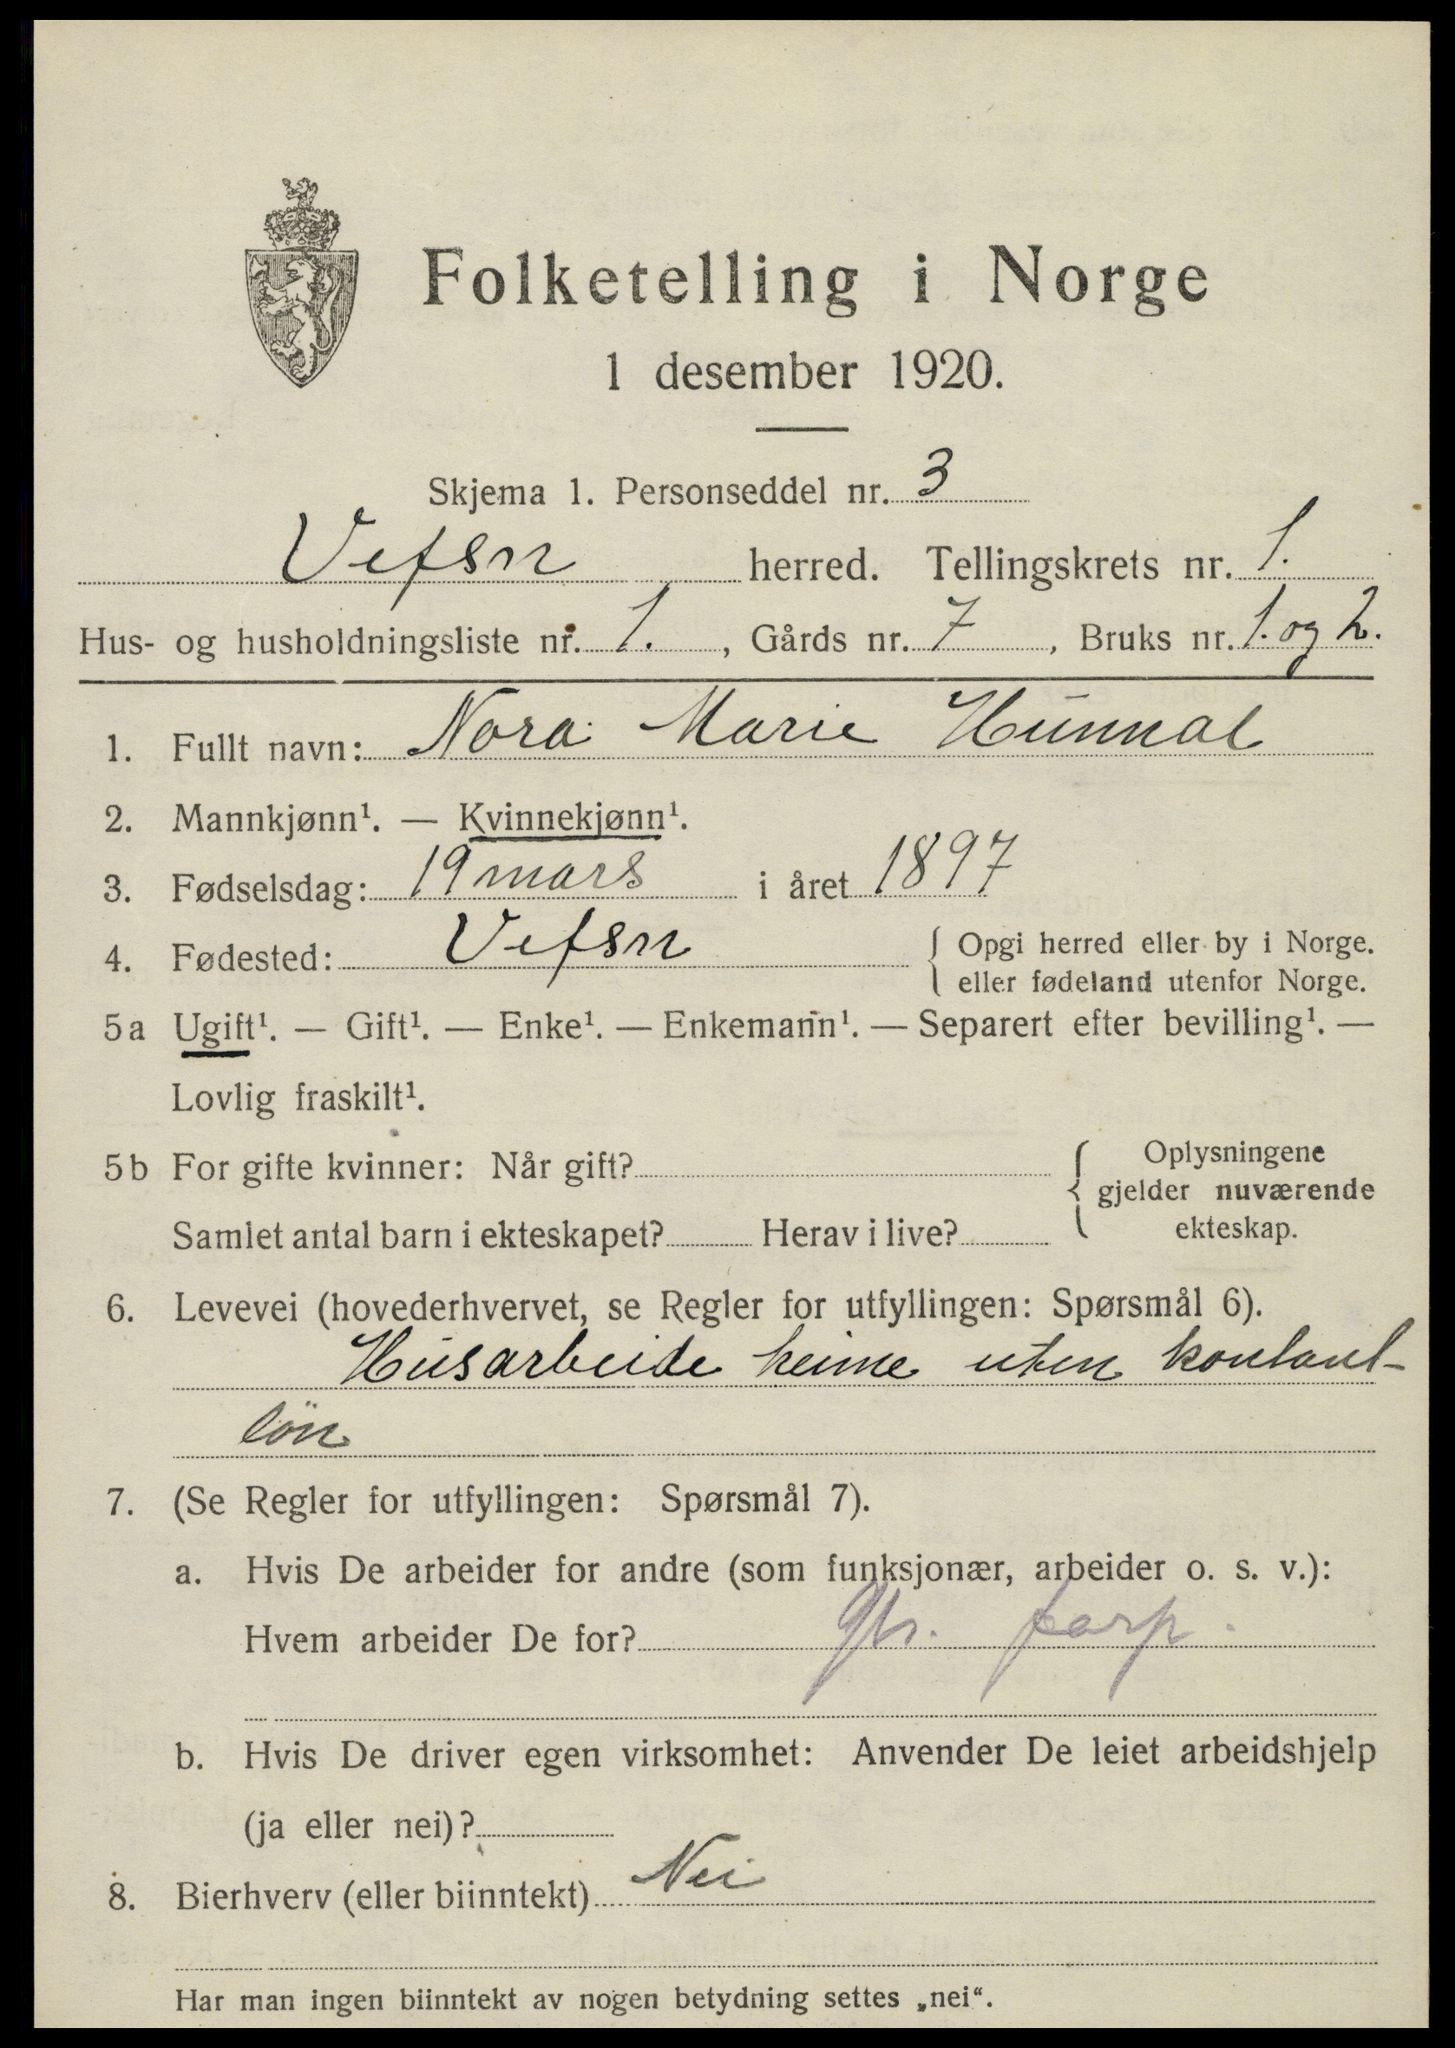 Folketelling i Norge
1 desember 1920.
Skjema 1. Personseddel nr. 3
Vefsn herred. Tellingskrets nr. 1.
Hus- og husholdningsliste nr. 1., Gårds nr. 7, Bruks nr. 1. og 2.
1. Fullt navn: Nora Marie Hunnal
2. Mannkjønn¹. — Kvinnekjønn¹.
3. Fødselsdag: 19 mars i året 1897
4. Fødested: Vefsn { Opgi herred eller by i Norge.
eller fødeland utenfor Norge.
5a Ugift¹. — Gift¹. — Enke¹. — Enkemann¹. — Separert efter bevilling¹. —
Lovlig fraskilt¹.
5b For gifte kvinner: Når gift? { Oplysningene
gjelder nuværende
Samlet antal barn i ekteskapet? Herav i live? ekteskap.
6. Levevei (hovederhvervet, se Regler for utfyllingen: Spørsmål 6).
Husarbeide heime uten kontant-
løn
7. (Se Regler for utfyllingen: Spørsmål 7).
a. Hvis De arbeider for andre (som funksjonær, arbeider o. s. v.):
Hvem arbeider De for?
b. Hvis De driver egen virksomhet: Anvender De leiet arbeidshjelp
(ja eller nei)?
8. Bierhverv (eller biinntekt) Nei
Har man ingen biinntekt av nogen betydning settes „nei“.